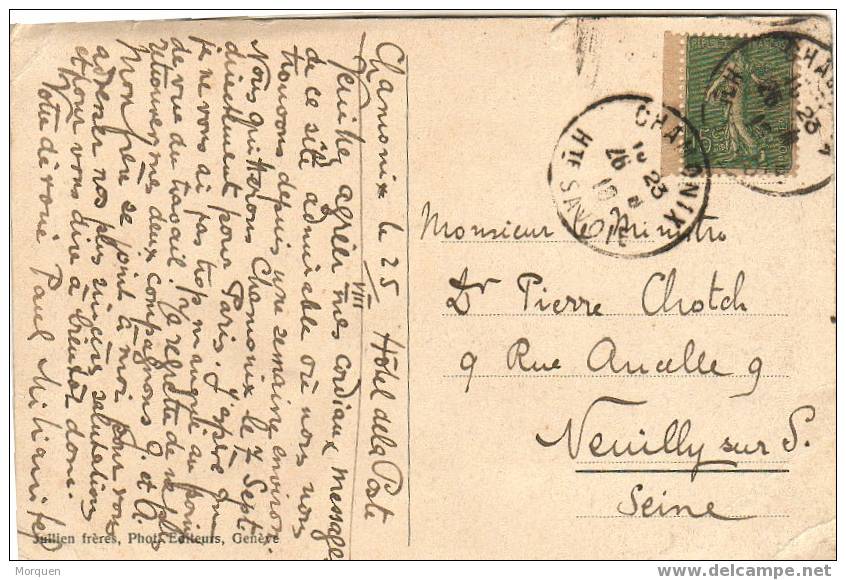 Chamonix le 25/VIII Hôtel de la Poste
Veuillez agréer mes cordiaux messages
de ce site admirable où nous nous
trouvons depuis une semaine environ.
Nous quitterons Chamonix le 7 Sept.
directement pour Paris. J'espère que
je ne vous ai pas trop manqué au point
de vue du travail! Je regrette de ne plus
retrouver mes deux compagnons
Mon père se joint à moi pour vous
adresser nos plus sincères salutations
et pour vous dire à bientôt donc.
Votre dévoué Paul
Jullien frères, Phot. Editeurs, Genève
CHAMONIX
23
26
HTE SAVOIE
Monsieur le Ministre
Dr Pierre Chotch
9 Rue Ancelle 9
Neuilly sur S.
Seine
Morquen
www.delcampe.net